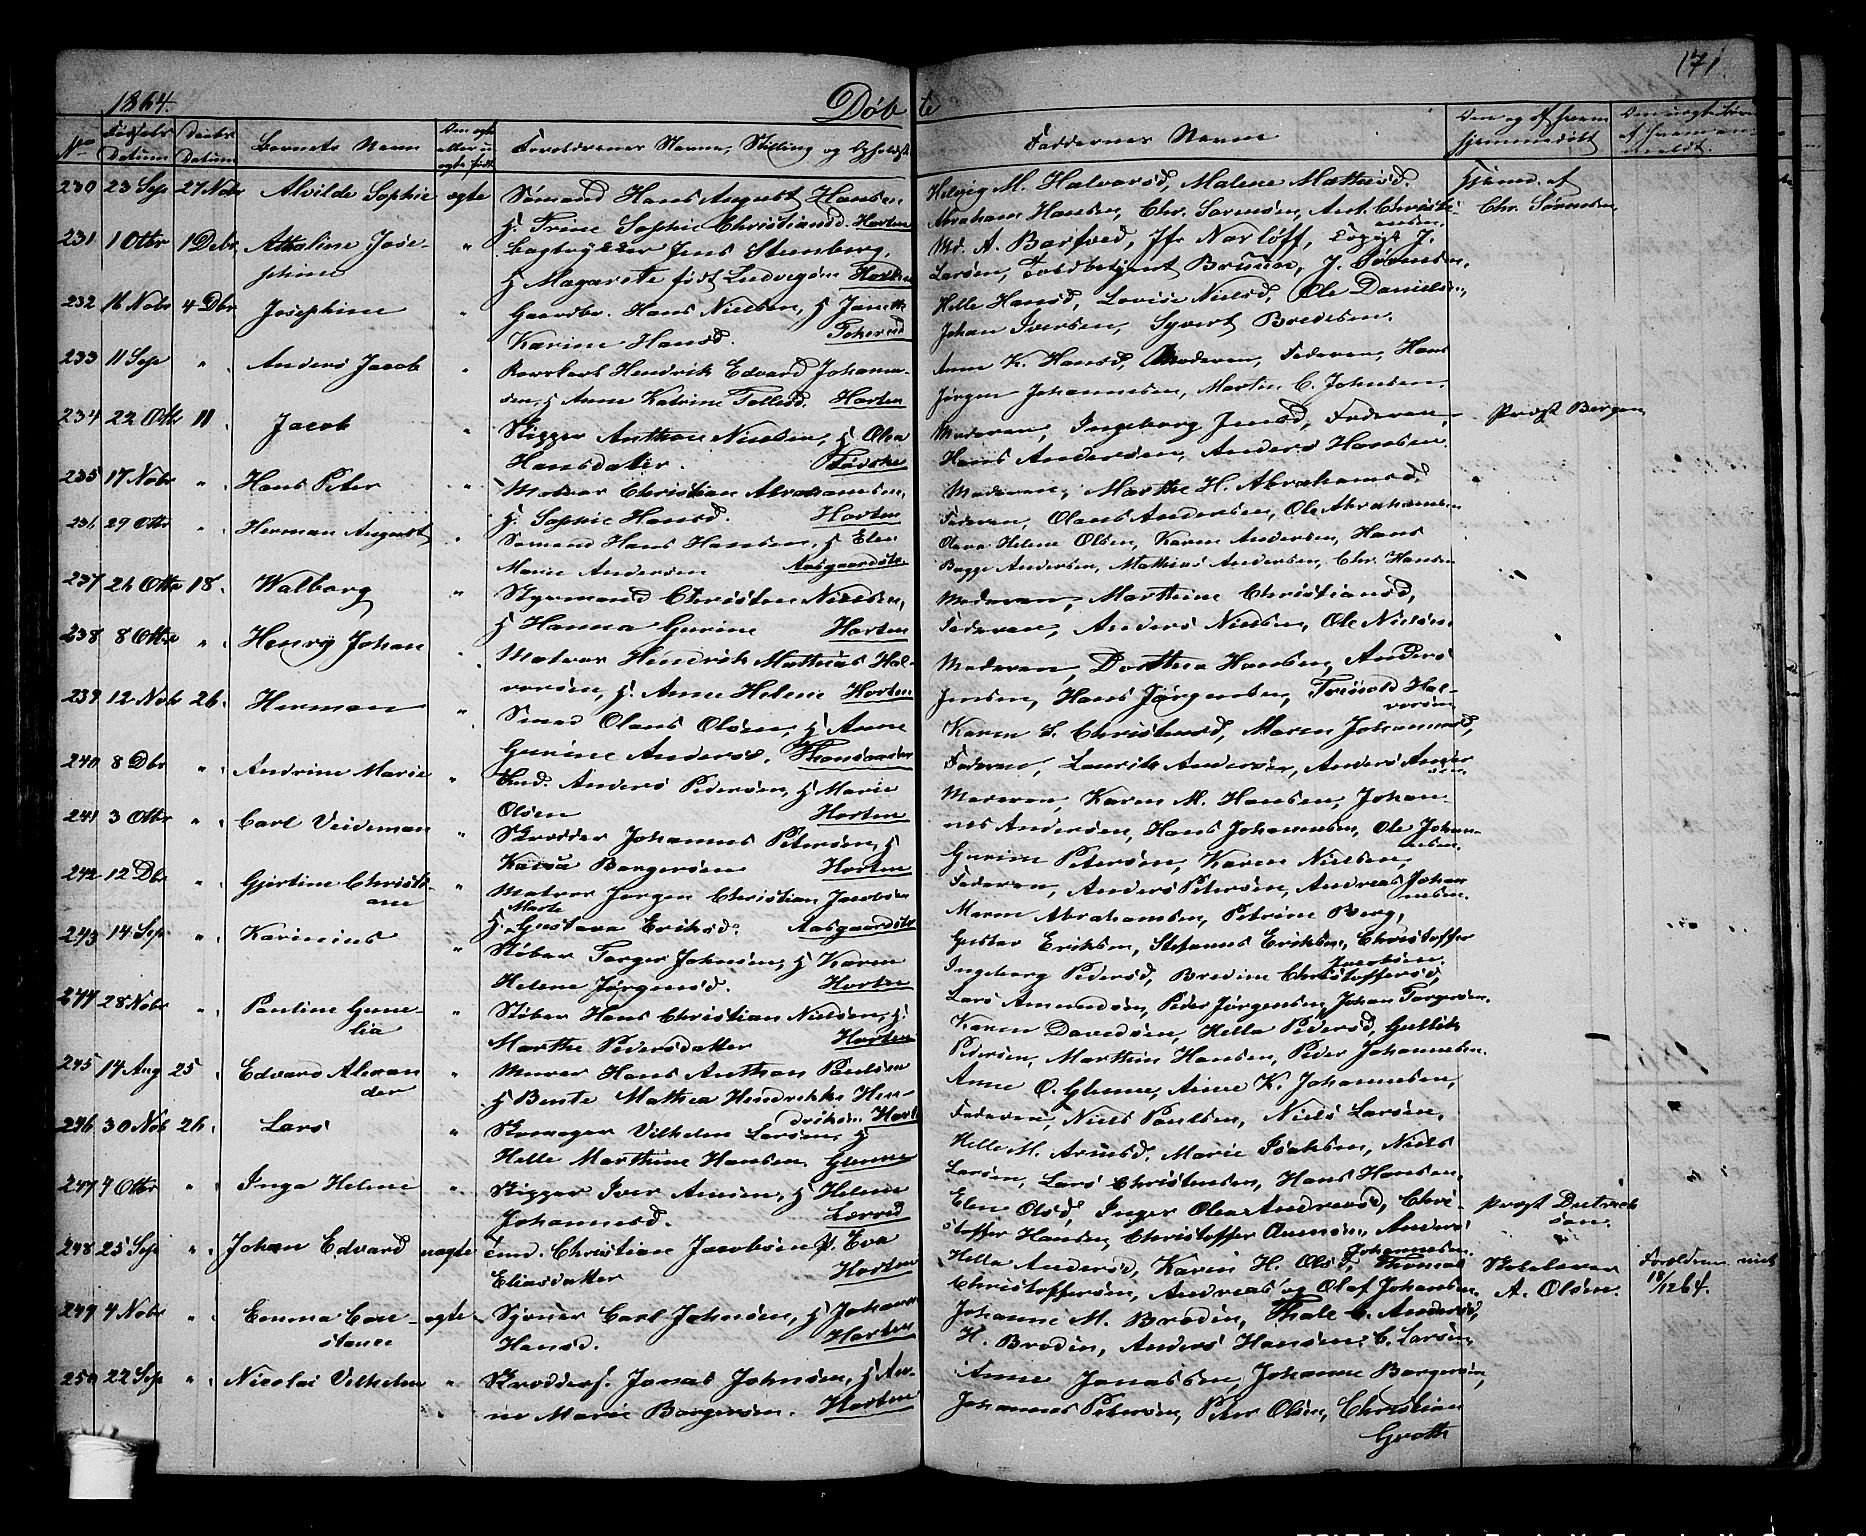 1864.
Døbte
171.
No
Fødsels Datum
Daabs Datum
Barnets Navn
Om ægte eller uægte født
Forældrenes Navne, Stilling og Opholdsst.
Faddernes Navne
Om og af hvem hjemmedøbt
230 23 Sep 27 Nobr Alvilde Sophie ægte Sømand Hans August Hansen
H. Trine Sophie Christiansd. Horten
Helvig M. Halvorsd, Malene Mathisd.
Abraham Hansen, Chr. Sørensen, Ant. Christiansen
Hjemmed. af
Chr. Sørensen
231 1 Otbr 1 Debr Josephine " Jens Stenberg,
H Magarete født Ludvigsen Horten
Md. A. Barfoed, Jfr Narløff, J.
Larsen, Toldbetjent Bruun, J. Svendsen.
232 16 Nobr 4 Dbr Josephine " Gaardbr. Hans Nielsen, H Janette
Karine Hansd.
Helle Hansd, Lovise Nielsd, Ole Danielsen,
Johan Iversen, Syvert Bredesen.
233 11 Sep " Anders Jacob " Hendrik Edvard Johannesen, H Anne Katrine Tollesd. Horten
Anne K. Hansd, Moderen, Faderen, Hans
Jørgen Johannesen, Martin C. Johnsen.
234 22 Otbr 11. Jacob " Rigger Anthon Nielsen, H Olea
Hansdatter.
Moderen, Ingeborg Jensd, Faderen,
Hans Andersen, Anders Hansen.
Præst Bergan
235 17 Nobr " Hans Peter " Matros Christian Abrahamsen,
H. Sophie Hansd. Horten
Moderen, Marthe H. Abrahamsd,
Faderen, Olaus Andersen, Ole Abrahamsen
236 29 Otbr " Herman August " Sømand Hans Hansen, H Elen
Marie Andersen Aasgaardstr.
Olava Helene Olsen, Karen Andersen, Hans
Bagge Andersen, Mathias Andersen, Chr. Hansen
237 26 Otbr 18. Walborg " Styrmand Christen Nielsen,
H Hanna Gurine Horten
Moderen, Marthine Christiansd,
Faderen, Anders Nielsen, Ole Nielsen
238 8 Otbr " Henry Johan " Matros Hendrik Mathias Halvorsen, H. Anne Helene Horten
Moderen, Dorthea Hansen, Anders
Jensen, Hans Jørgensen, Halvorsen
239 12 Nobr 26. Herman " Smed Olaus Olsen, H Anne
Gurine Andersd.
Karen L. Christensd, Maren Johannesd,
Faderen, Laurits Andersen, Anders Andersen
240 8 Dbr " Andrine Marie " Tmd. Anders Pedersen, H Marie
Olsen Horten
Moderen, Karen M. Hansen, Johannes Andersen, Hans Johannesen, Ole Johannesen.
241 3 Otbr " Carl Veideman " Skrædder Johannes Petersen, H
Kaisa Borgersen Horten
Gurine Petersen, Karen Nielsen,
Faderen, Anders Petersen, Andreas Johannesen.
242 12 Dbr " Gjertine Christiane " Matros Jørgen Christian Jacobsen
H. Marte Gustava Eriksd. Aasgaardstr
Maren Abrahamsen, Petrine Berg,
Gustav Eriksen, Stefanus Eriksen, Christoffer
Jacobsen.
243 14 Sep " Karinius " Støber Torger Johnsen, H Karen
Helene Jørgensd. Horten
Ingeborg Pedersd, Bredine Christoffersd,
Lars Amundsen, Peder Jørgensen, Johan Torgersen.
244 28 Nobr " Pauline Gunelia " Støber Hans Christian Nielsen, H.
Marthe Pedersdatter Horten
Karen Davidsen, Hella Pedersd, Gullik
Pedersen, Marthin Hansen, Peder Johannesen.
245 14 Aug 25. Edvard Alexander " Murer Hans Anthon Paulsen
H Bente Mathea Hendrikke Hendriksen. Hort
Anne O. Glenne, Anne K. Johannesen,
Faderen, Niels Paulsen, Niels Larsen,
246 30 Nob 26. Lars " Skomager Vilhelm Larsen, H
Helle Marthine Hansen. Glenne
Helle M. Arnesd. Marie Isaksen, Niels
Larsen, Lars Christensen, Hans Hansen,
247 4 Otbr " Inga Helene " Rigger Iver Amsen, H Helene
Johannesd.
Elen Olsd, Inger Olea Andreasd, Christoffer Hansen, Christoffer Anders
Johannesen.
248 25 Sep " Johan Edvard uægte Christian Jacobsen P. Eva
Eliasdatter Horten
Hella Andersd, Karin H. Olsd, Thomas
Christoffersen, Andreas og Olaf Johansen.
Skolelærer
A. Olsen.
Forældrene
18/12 64.
249 4 Nobr " Emma Constance ægte Carl Johnsen, H Johanne
Hansd. Horten
Johanne M. Brodin, Thale C. Andersd,
H. Brodin, Anders Hansen, C. Larsen,
250 22 Sep " Nicolai Vilhelm " Skrædders. Jonas Johnsen, H Anne Marie Borgersen. Horten
Anne Jonassen, Johanne Borgersen,
Johannes Petersen, Peter Olsen, Christian
Groth